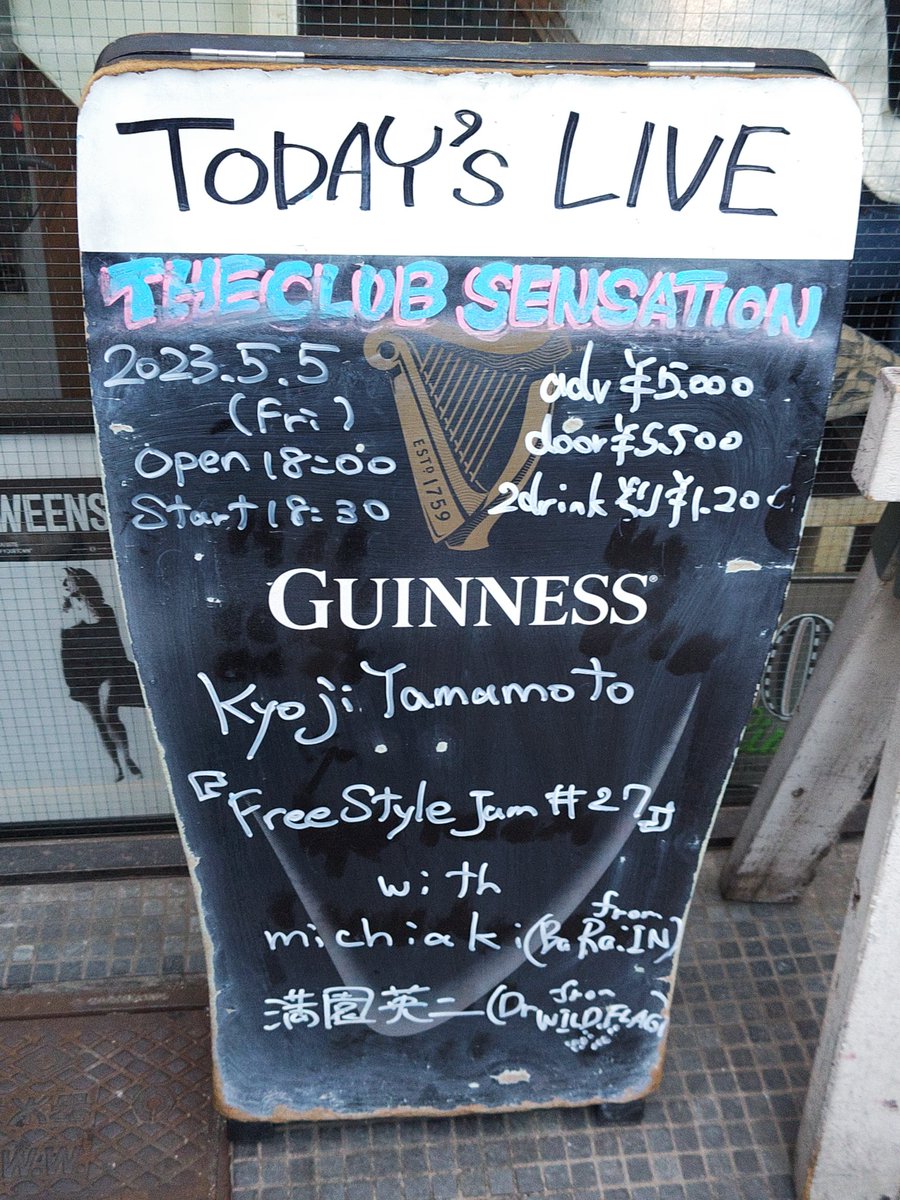 TODAY'S LIVE
THE CLUB SENSATION
2023.5.5
(Fri)
Open 18:00
Start 18:30
adv ¥5.000
door ¥5.500
2drink 別 ¥1.200
ESTD 1759
GUINNESS
Kyoji Yamamoto
『Free Style Jam #27』
with
michiaki (from Ba Ra:IN)
満園英二 (Dr from WILD FLAG)
WEENS